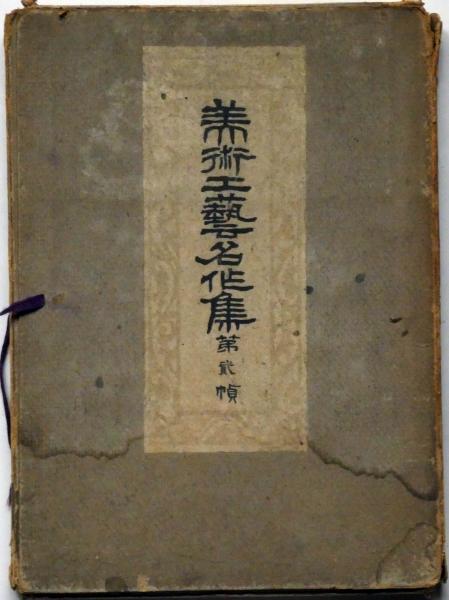 美術工藝名作集第貮幀